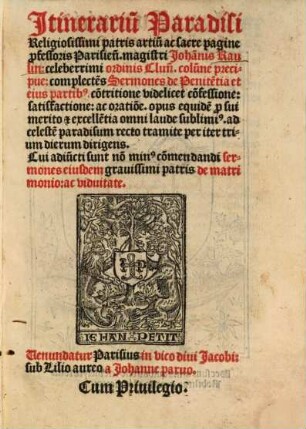 Itinerariū Paradisi
Religiosissimi patris artiū ac sacre pagine
ꝓfessoris Parisieñ. magistri Johānis Rau
lin: celeberrimi ordinis Cluñ. colūne preci
pue: complectēs Sermones de Penitētia et
eius partibꝰ. cōtritione videlicet cōfessione:
satisfactione: ac oratiōe. opus equidē ꝓ sui
merito & excellētia omni laude sublimiꝰ. ad
celestē paradisum recto tramite per iter triun
dierum dirigens.
Cui adiuncti sunt nō minꝰ cōmendandi ser-
mones eiusdem grauissimi patris de matri
monio: ac viduitate.
IP
IEHAN PETIT
Venundatur Parisius in vico diui Jacobi:
sub Lilio aureo a Johanne paruo.
Cum Priuilegio.